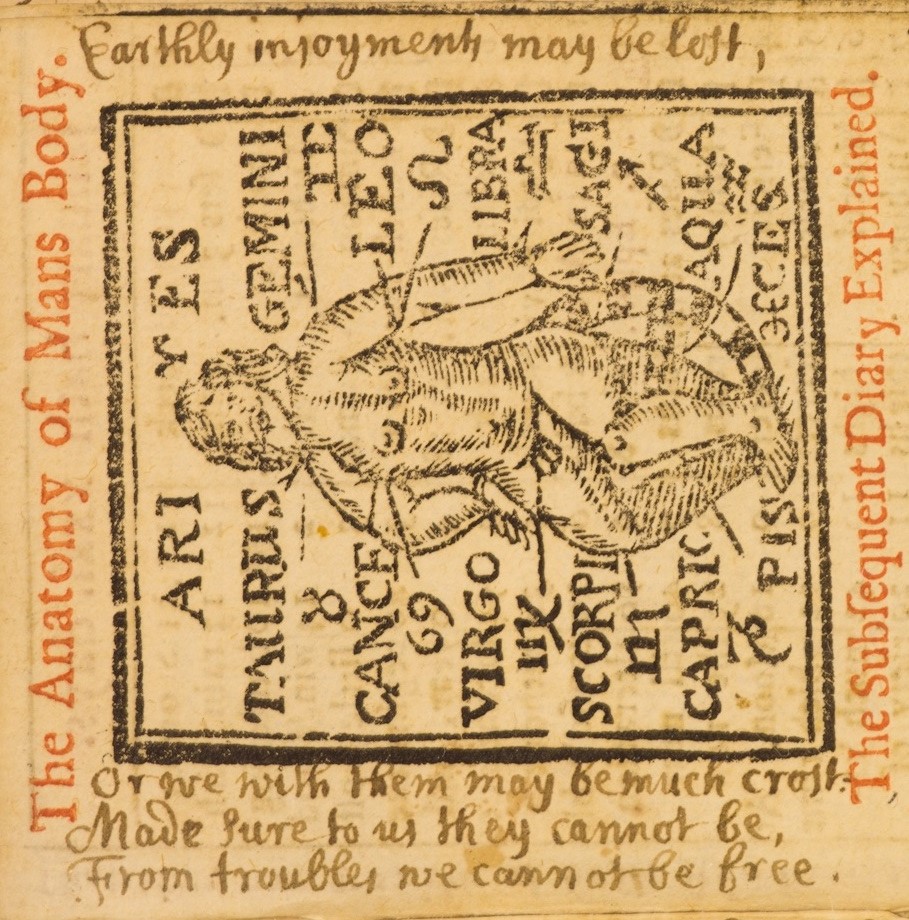 Earthly injoyments may be lost,
The Anatomy of Mans Body.
ARI ♈ ES
TAURUS GEMINI
♉ ♊
CANCE LEO
♋ ♌
VIRGO LIBRA
♍ ♎
SCORPI SAGI
♏ ♐
CAPRIC AQUA
♑ ♒
PIS ♓ CES
The Subſequent Diary Explained.
Or we with them may be much croſt:
Made ſure to us they cannot be,
From troubles we cannot be free.